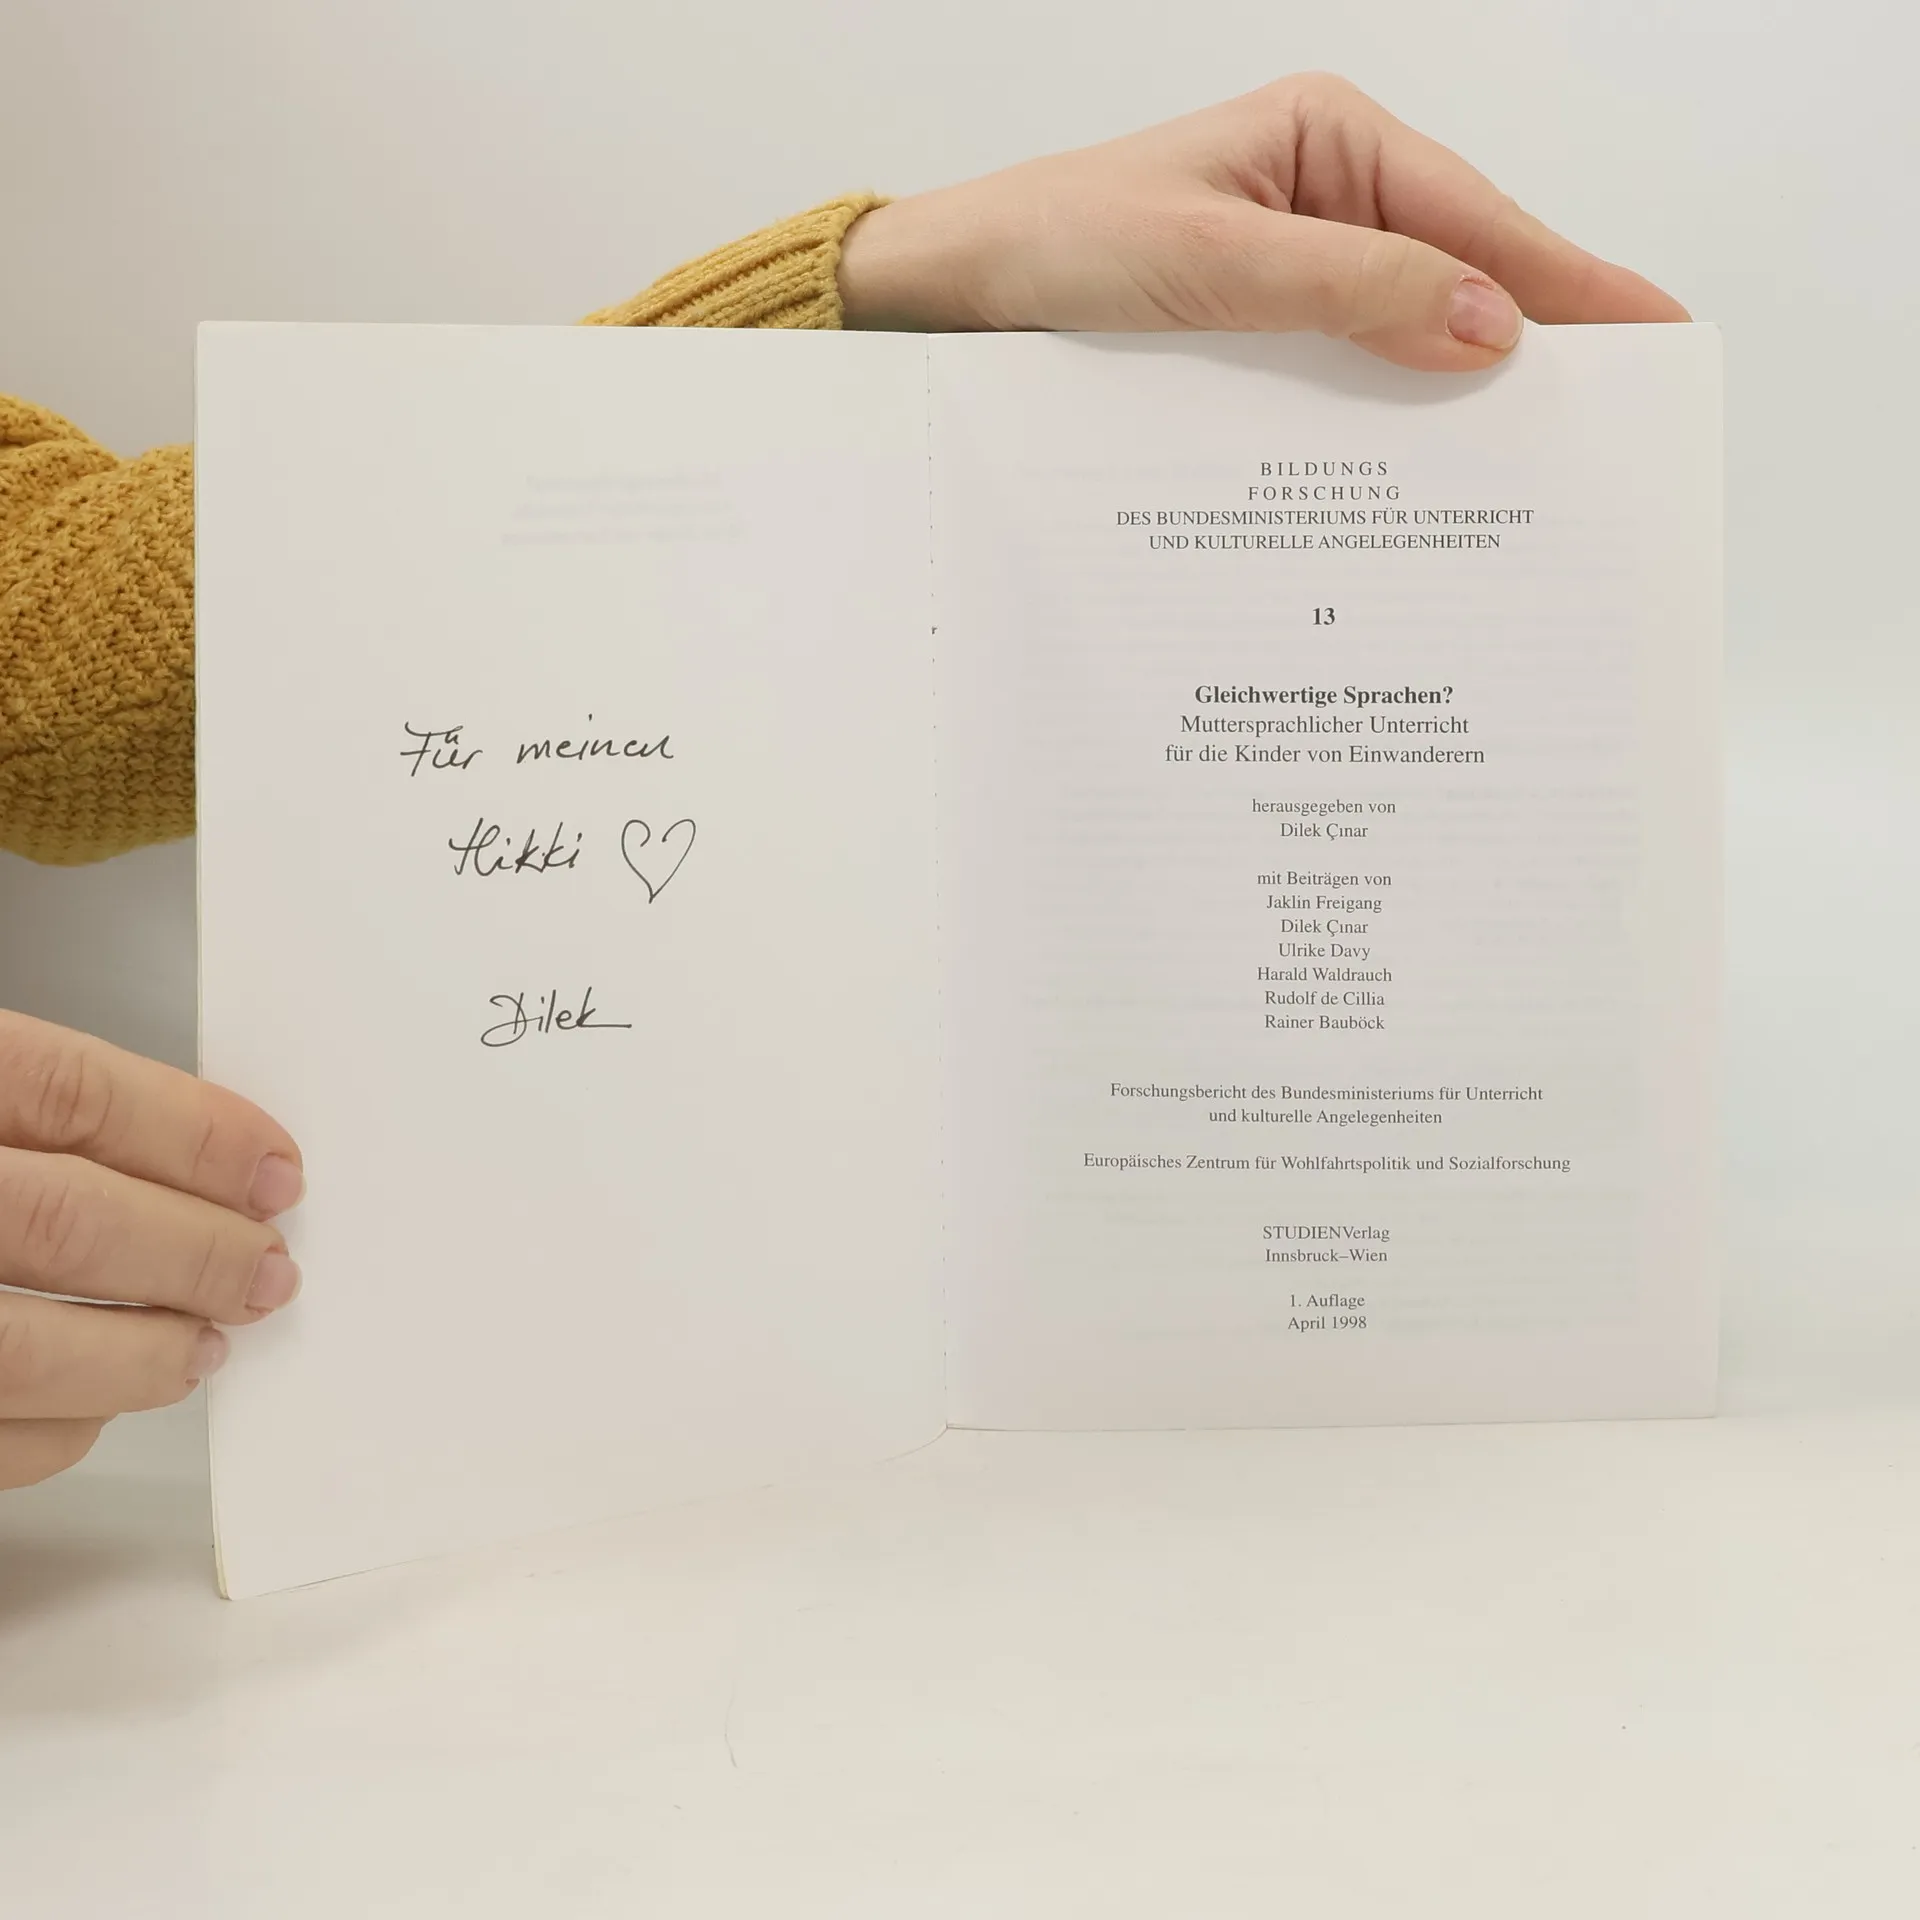 Für meinen
Hikki ♡
Dilek
BILDUNGS
FORSCHUNG
DES BUNDESMINISTERIUMS FÜR UNTERRICHT
UND KULTURELLE ANGELEGENHEITEN
13
Gleichwertige Sprachen?
Muttersprachlicher Unterricht
für die Kinder von Einwanderern
herausgegeben von
Dilek Çınar
mit Beiträgen von
Jaklin Freigang
Dilek Çınar
Ulrike Davy
Harald Waldrauch
Rudolf de Cillia
Rainer Bauböck
Forschungsbericht des Bundesministeriums für Unterricht
und kulturelle Angelegenheiten
Europäisches Zentrum für Wohlfahrtspolitik und Sozialforschung
STUDIENVerlag
Innsbruck–Wien
1. Auflage
April 1998